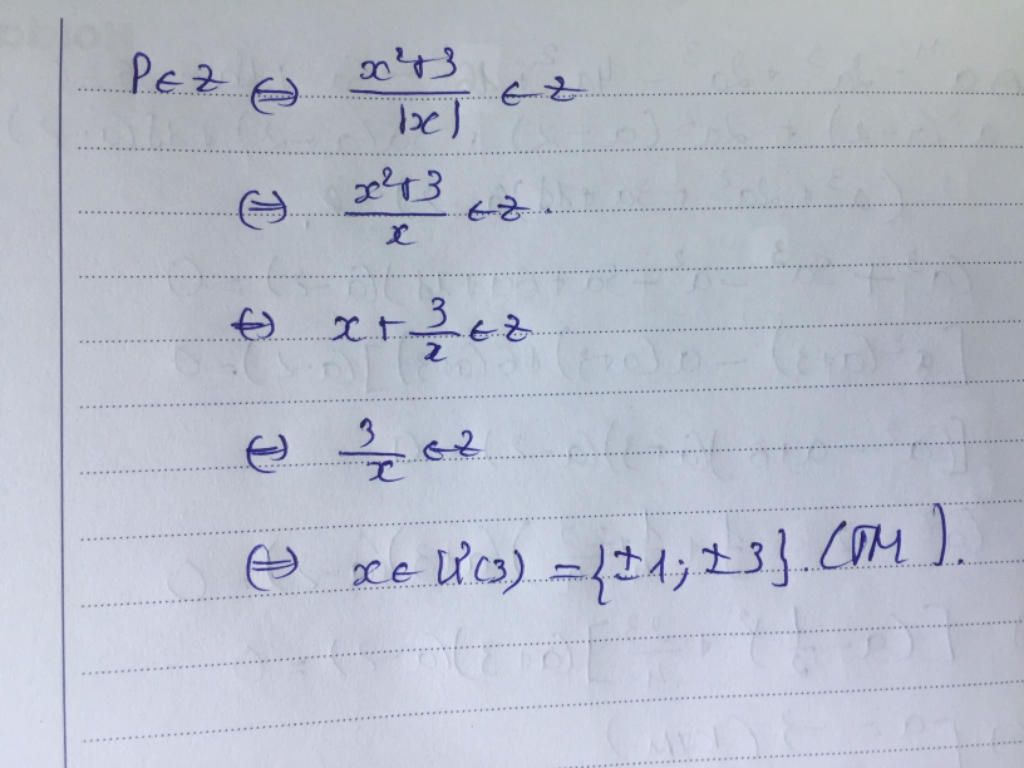 P ∈ Z ⇔ \frac{x²+3}{|x|} ∈ Z
⇔ \frac{x²+3}{x} ∈ Z.
⇔ x + \frac{3}{x} ∈ Z
⇔ \frac{3}{x} ∈ Z
⇔ x ∈ Ư(3) = {±1; ±3}. (TM).